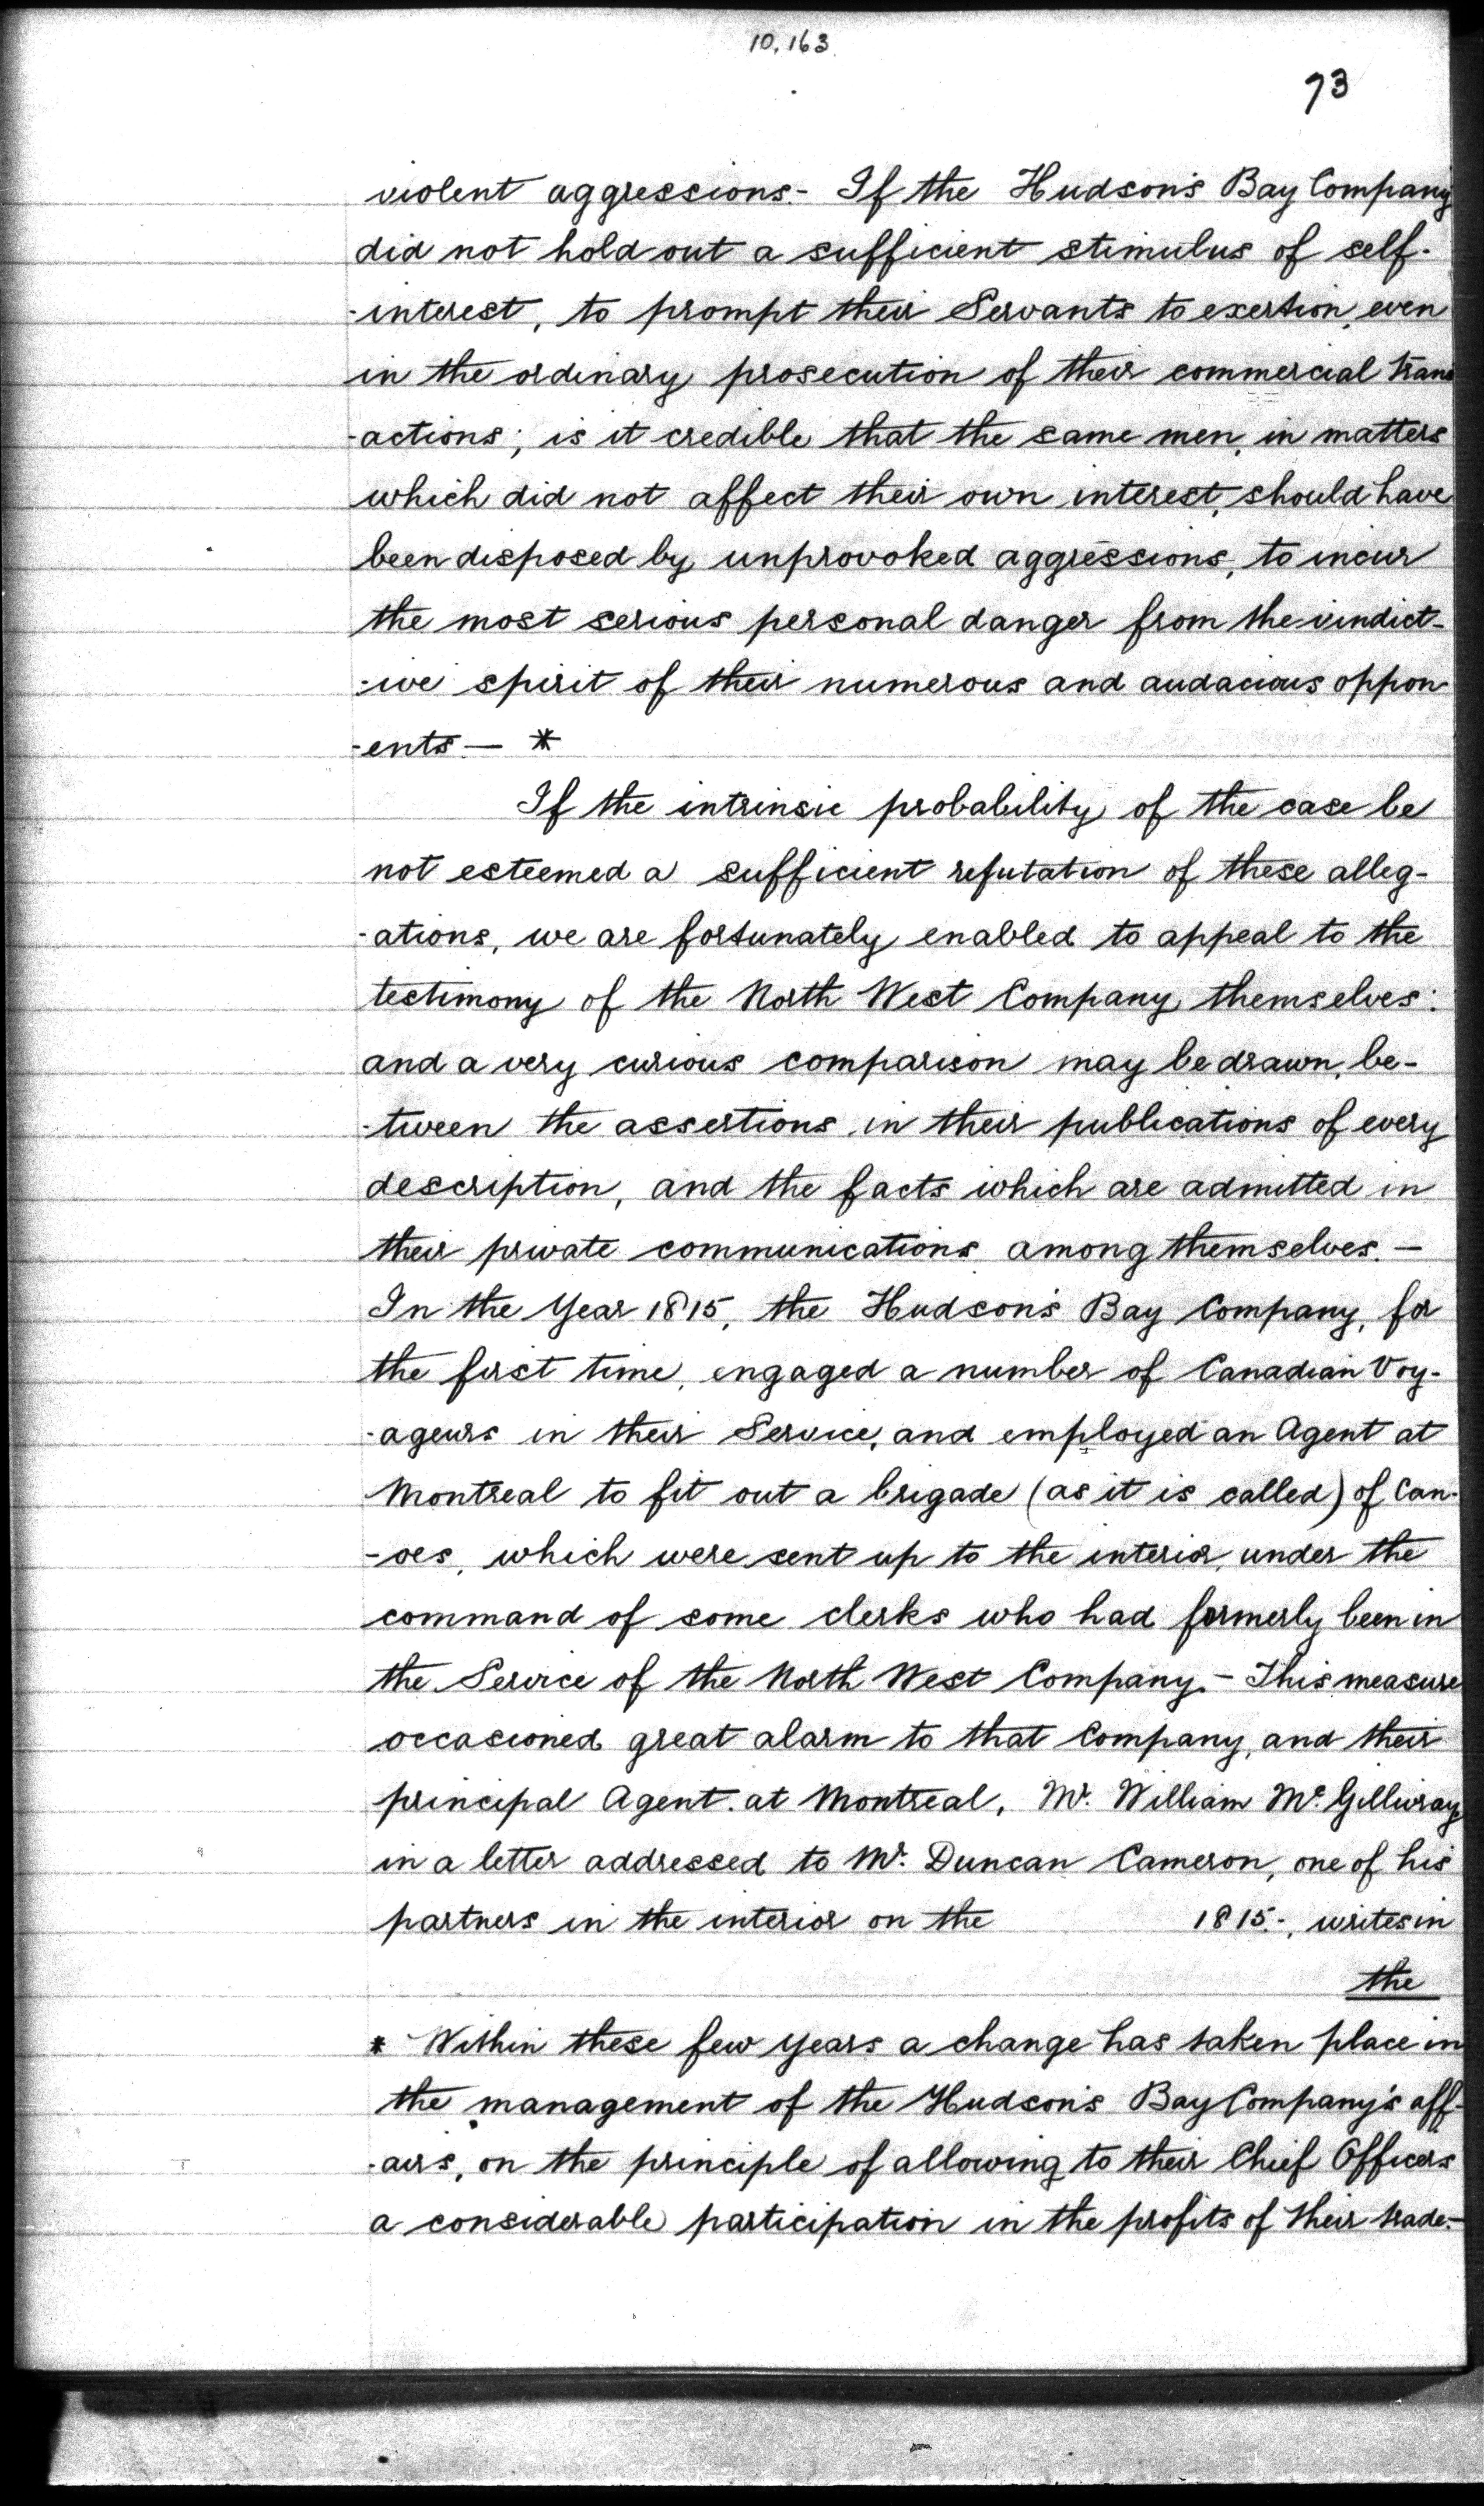 10,163
73
violent aggressions.- If the Hudson's Bay Company
did not hold out a sufficient stimulus of self-
-interest, to prompt their Servants to exertion, even
in the ordinary prosecution of their commercial trans
-actions; is it credible that the same men, in matters
which did not affect their own interest, should have
been disposed by unprovoked aggressions, to incur
the most serious personal danger from the vindict-
-ive spirit of their numerous and audacious oppon-
-ents.— *
If the intrinsic probability of the case be
not esteemed a sufficient refutation of these alleg-
-ations, we are fortunately enabled to appeal to the
testimony of the North West Company themselves:
and a very curious comparison may be drawn, be-
-tween the assertions in their publications of every
description, and the facts which are admitted in
their private communications among themselves.—
In the Year 1815, the Hudson's Bay Company, for
the first time, engaged a number of Canadian Voy-
-ageurs in their Service, and employed an Agent at
Montreal to fit out a brigade (as it is called) of Can-
-oes, which were sent up to the interior, under the
command of some clerks who had formerly been in
the Service of the North West Company.- This measure
occasioned great alarm to that Company, and their
principal Agent at Montreal, Mr. William Mc.Gillivray,
in a letter addressed to Mr. Duncan Cameron, one of his
partners in the interior on the 1815-, writes in
the
* Within these few years a change has taken place in
the management of the Hudson's Bay Company's aff-
-airs, on the principle of allowing to their Chief Officers
a considerable participation in the profits of their trade.-